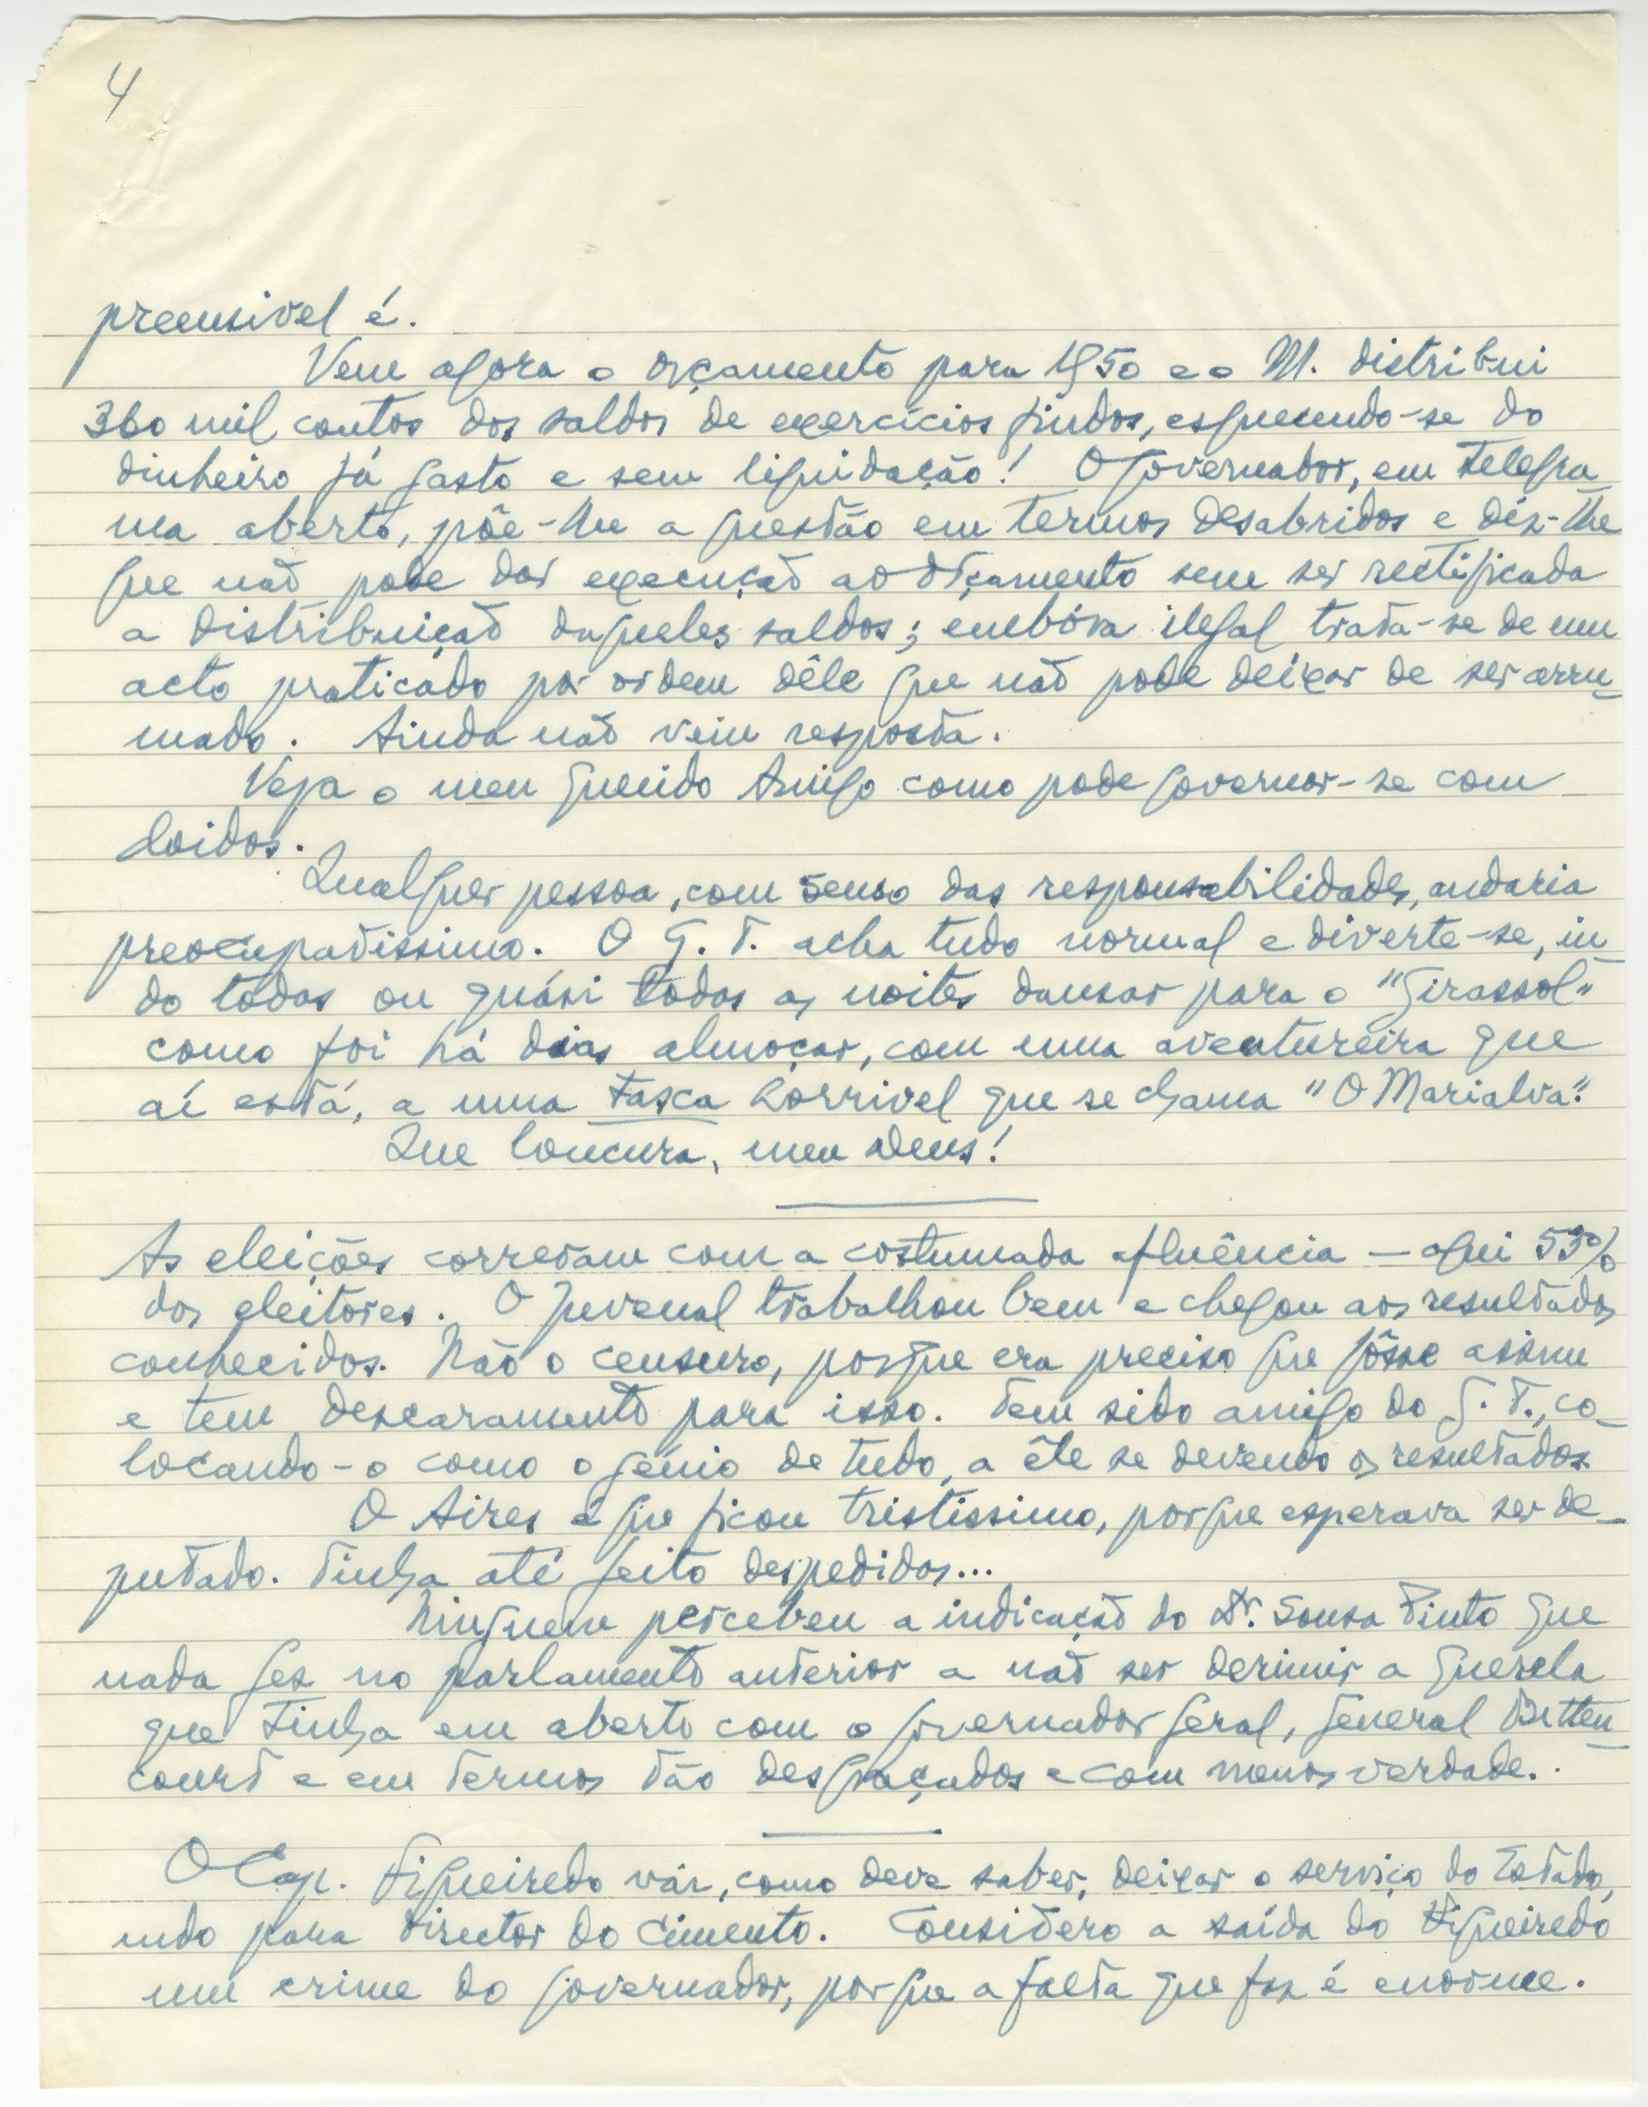 4
preensivel é.
Vem agora o orçamento para 1950 e o M. distribui
360 mil contos dos saldos de exercícios findos, esquecendo-se do
dinheiro já gasto e sem liquidação! O governador, em telegra
ma aberto, põe-lhe a questão em termos desabridos e diz-lhe
que não pode dar execução ao orçamento sem ser rectificada
a distribuição daqueles saldos; embóra ilegal trata-se de um
acto praticado por ordem dêle que não pode deixar de ser arru-
mado. Ainda não veiu resposta.
Veja o meu querido Amigo como pode governar-se com
doidos.
Qualquer pessoa, com senso das responsabilidades, andaria
preocupadissimo. O G. T. acha tudo normal e diverte-se, in-
do todas ou quási todas as noites dansar para o "Girassol"
como foi há dias almoçar, com uma aventureira que
aí está, a uma tasca horrivel que se chama "O Marialva".
Que loucura, meu Deus!
As eleições correram com a costumada afluência — aqui 53%
dos eleitores. O Juvenal trabalhou bem e chegou aos resultados
conhecidos. Não o censuro, porque era preciso que fôsse assim
e tem descaramento para isso. Tem sido amigo do G. T., co-
locando-o como o génio de tudo, a êle se devendo os resultados.
O Aires é que ficou tristissimo, porque esperava ser de-
putado. Tinha até feito despedidas...
Ninguem percebeu a indicação do Dr. Sousa Pinto que
nada fez no parlamento anterior a não ser derimir a querela
que tinha em aberto com o governador geral, general Bitten-
court e em termos tão desgraçados e com menos verdade.
O Cap. Figueiredo vai, como deve saber, deixar o serviço do Estado,
indo para director do Cimento. Considero a saída do Figueiredo
um crime do governador, porque a falta que faz é enorme.